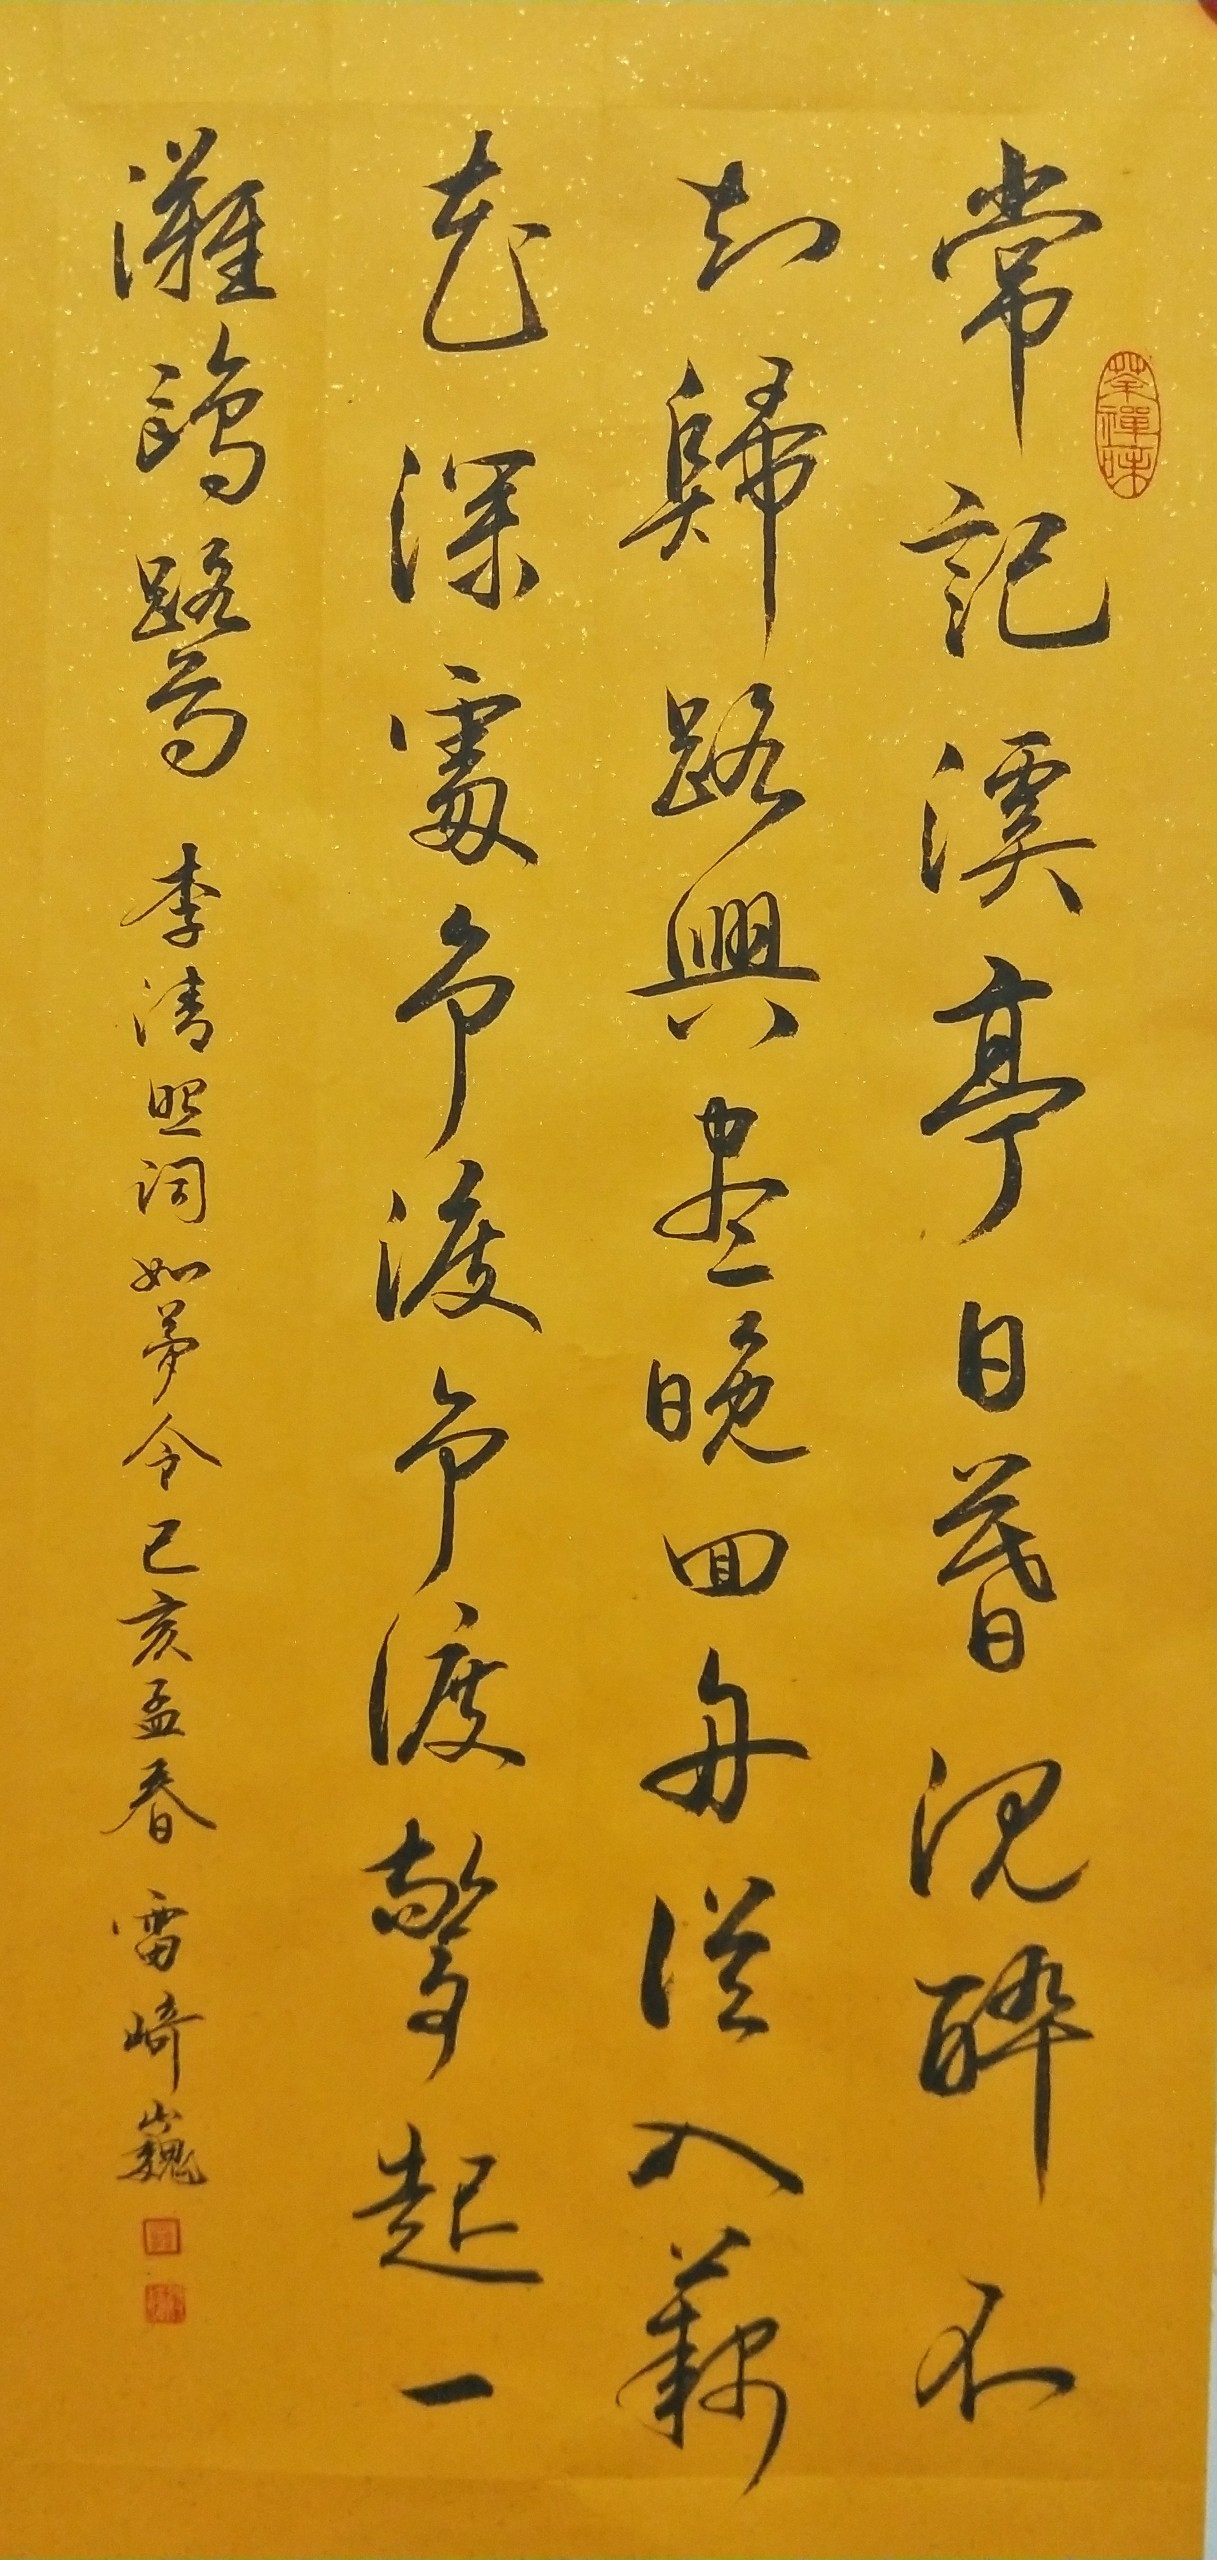 茶禪味
常記溪亭日暮沉醉不
知歸路興盡晚回舟誤入藕
花深處爭渡爭渡驚起一
灘鷗鷺 李清照詞如夢令己亥孟春 雷崎巍